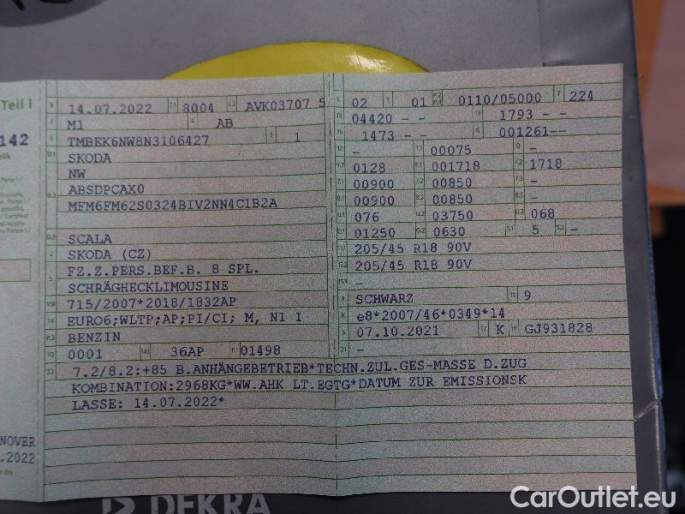 Teil I
142
NOVER
.2022
14.07.2022 8004 AVK03707 5
M1 AB
TMBEK6NW8N3106427 1
SKODA
NW
ABSDPCAX0
MFM6FM62S0324BIV2NN4C1B2A
SCALA
SKODA (CZ)
FZ.Z.PERS.BEF.B. 8 SPL.
SCHRÄGHECKLIMOUSINE
715/2007*2018/1832AP
EURO6;WLTP;AP;PI/CI; M, N1 I
BENZIN
0001 36AP 01498
02 01 0110/05000 224
04420 - - 1793 - -
1473 - - 001261--
- 00075 -
0128 001718 1718
00900 00850 -
00900 00850 -
076 03750 068
01250 0630 5 -
205/45 R18 90V
205/45 R18 90V
-
SCHWARZ 9
e8*2007/46*0349*14
07.10.2021 K GJ931828
-
7.2/8.2:+85 B.ANHÄNGEBETRIEB*TECHN.ZUL.GES-MASSE D.ZUG
KOMBINATION:2968KG*WW.AHK LT.EGTG*DATUM ZUR EMISSIONSK
LASSE: 14.07.2022*
DEKRA
CarOutlet.eu